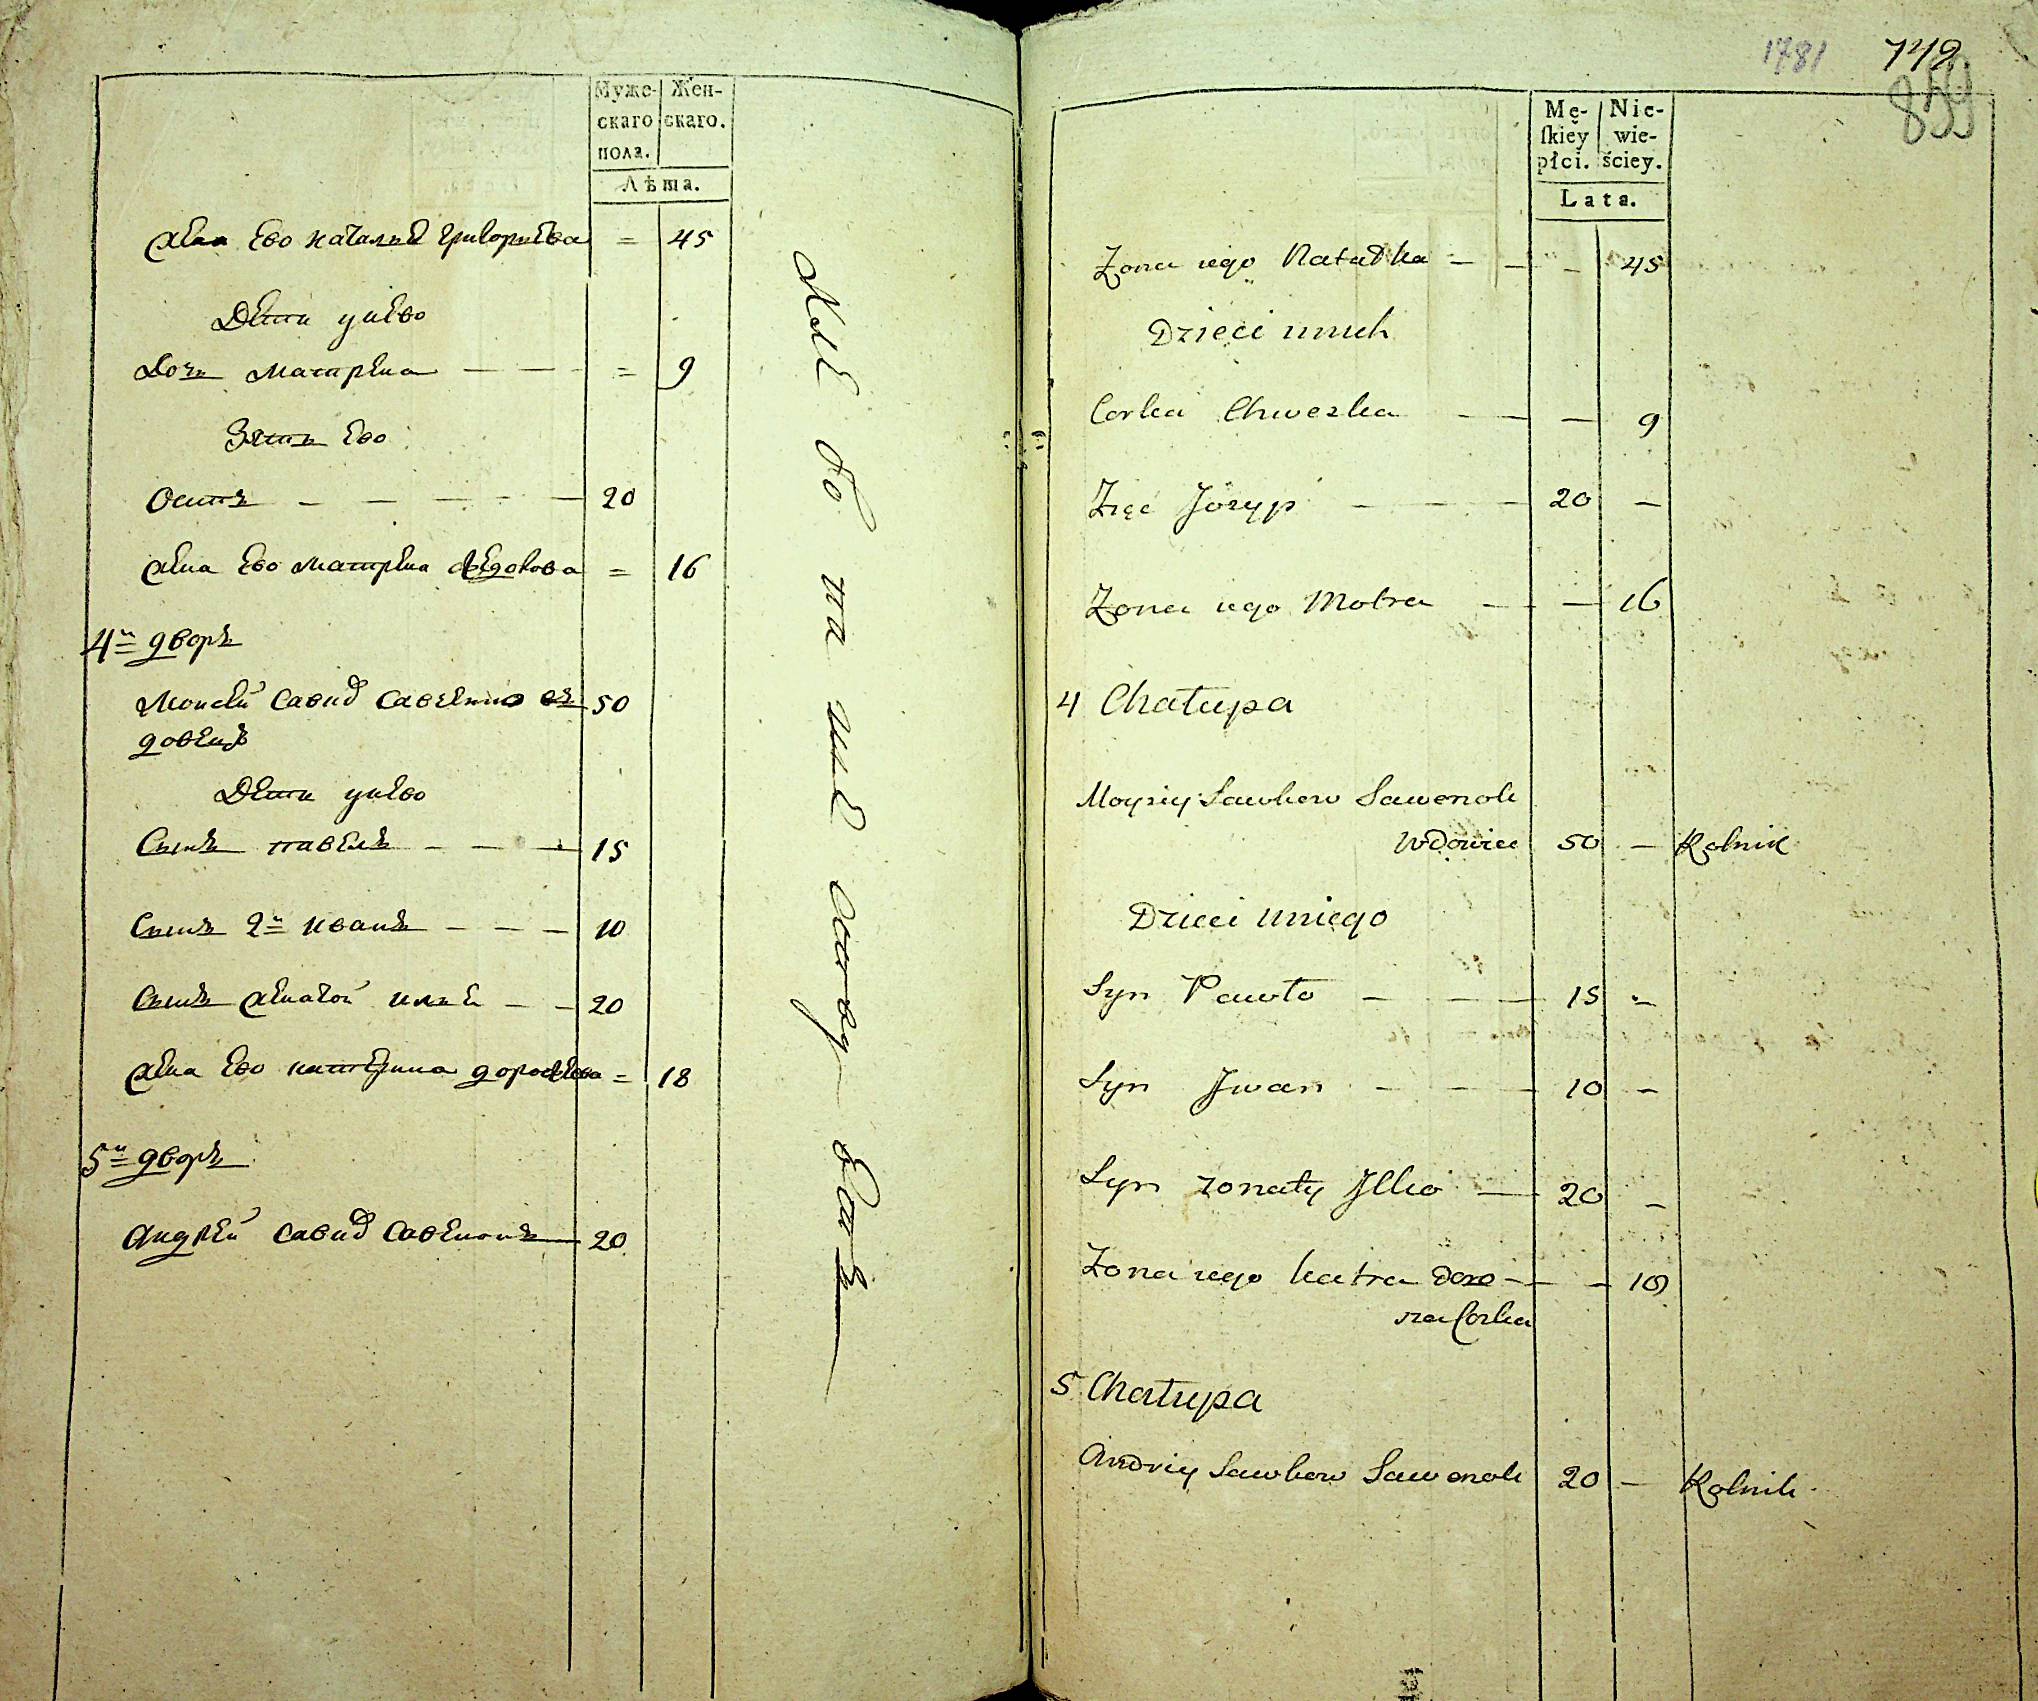 Муже-
скаго
пола.
Жен-
скаго.
Лѣта.
жена ево наталия григориева = 45
Дети унево
дочь матрена — — = 9
Зять ево
Осипъ — — — — 20
жена ево матрена федорова = 16
4й дворъ
Моисей савиⷣ савенко въ 50
довецъ
Дети унево
Сынъ павелъ — — — 15
Сынъ 2й иванъ — — — 10
Сынъ женатой илья — — 20
жена ево катерина дорофеева = 18
5й дворъ
Андрей савиⷣ савенокъ — 20
1781 749
859
Mę-
ſkiey
płci.
Nie-
wie-
ściey.
Lata.
Zona iego Natałka — — — 45
Dzieci unich
Corka Chweska — — — 9
Zięć Jozyp — — — 20 —
Zona iego Motra — — 16
4 Chałupa
Moyziy Sawkow Sawenok
Wdowiec 50 — Rolnik
Dzieci uniego
Syn Pawło — — — 15 —
Syn Jwan — — — 10 —
Syn zonaty Jlko — 20 —
Zona iego Katra — — 18
Corka
5 Chałupa
Andriy Sawkow Sawenok 20 — Rolnik